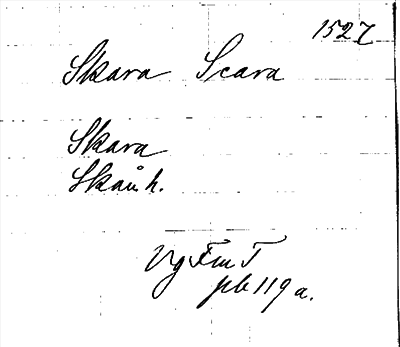 1527
Skara Scara
Skara
Skån h.
Vg Fm T
pb 119 a.